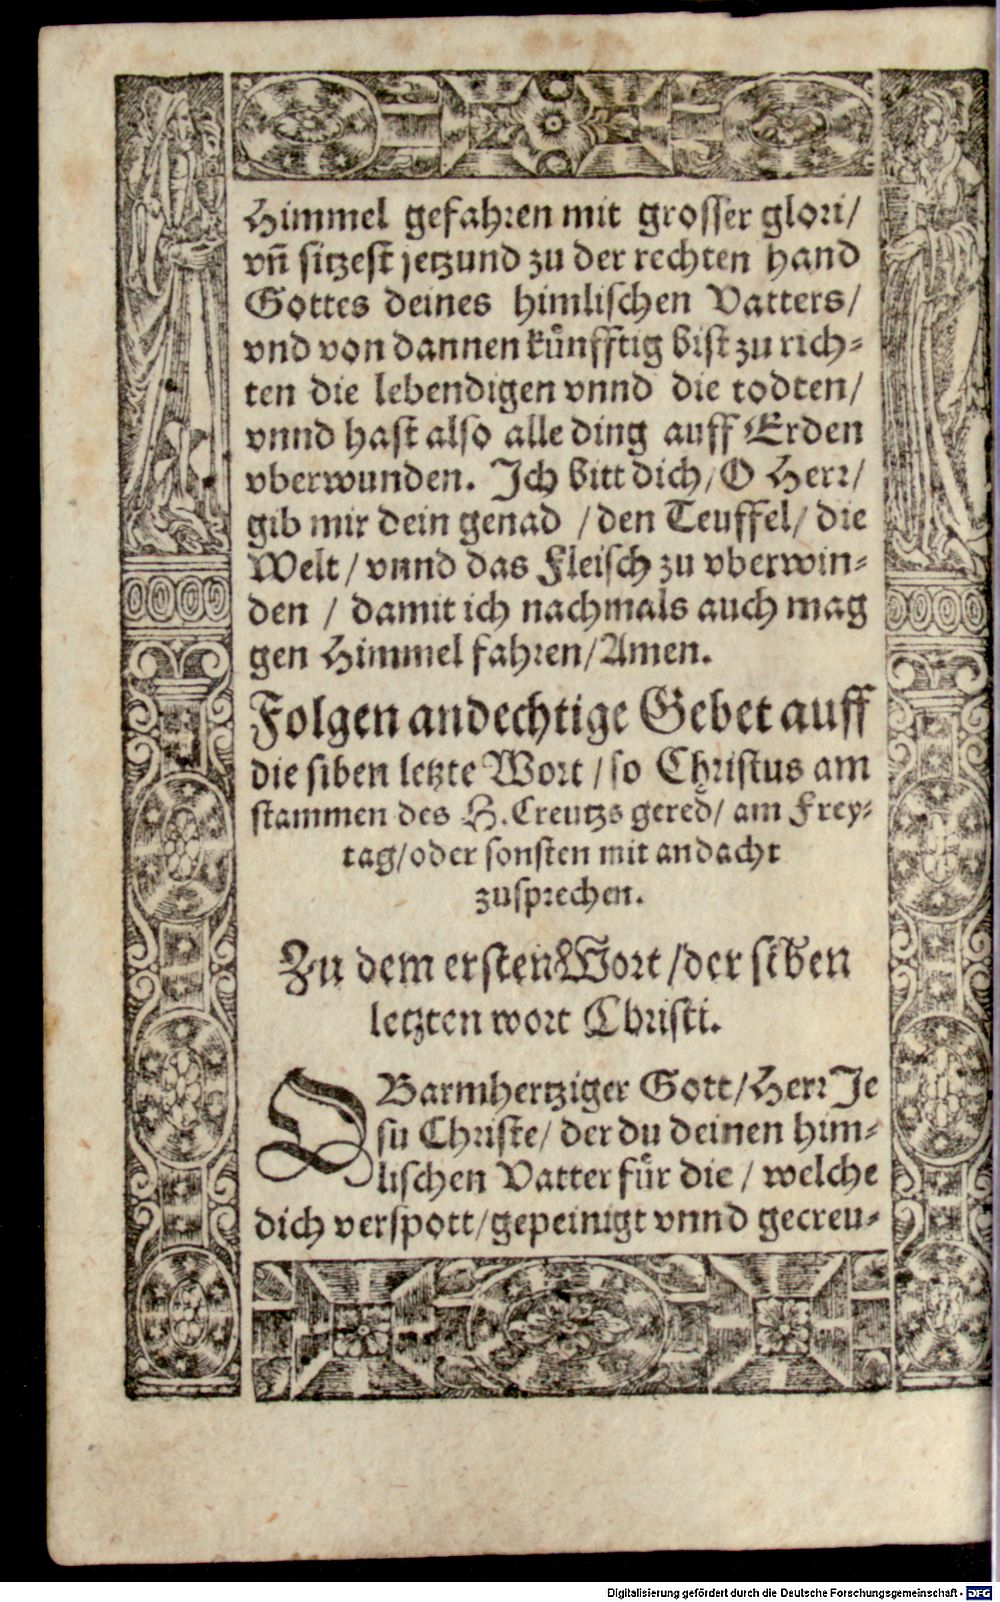 Himmel gefahren mit grosser glori/
vñ sitzest jetzund zu der rechten hand
Gottes deines himlischen Vatters/
vnd von dannen kůnfftig bist zu rich-
ten die lebendigen vnnd die todten/
vnnd hast also alle ding auff Erden
vberwunden. Ich bitt dich/ O Herr/
gib mir dein genad / den Teuffel/ die
Welt / vnnd das Fleisch zu vberwin-
den / damit ich nachmals auch mag
gen Himmel fahren/ Amen.
Folgen andechtige Gebet auff
die siben letzte Wort / so Christus am
stammen des H. Creutzs gered/ am Frey-
tag/ oder sonsten mit andacht
zusprechen.
Zu dem ersten Wort / der siben
letzten wort Christi.
O Barmhertziger Gott/ Herr Je
su Christe/ der du deinen him-
lischen Vatter fůr die / welche
dich verspott/ gepeinigt vnnd gecreu-
Digitalisierung gefördert durch die Deutsche Forschungsgemeinschaft - DFG